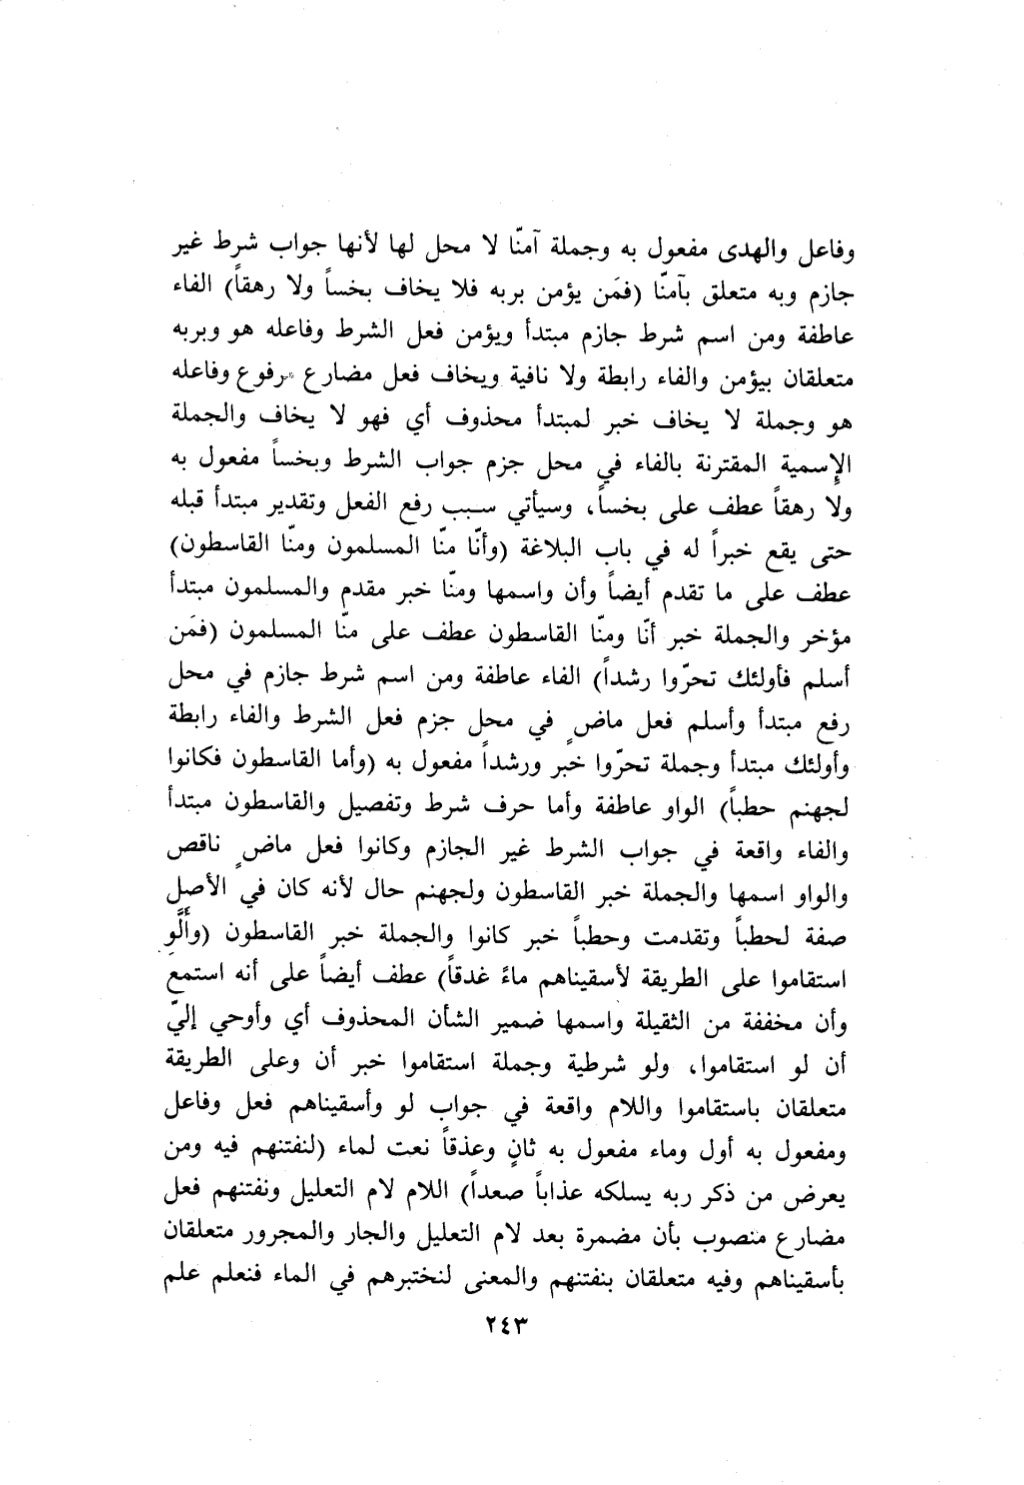 وفاعل والهدى مفعول به وجملة آمنّا لا محل لها لأنها جواب شرط غير
جازم وبه متعلق بآمنّا (فمَن يؤمن بربه فلا يخاف بخساً ولا رهقاً) الفاء
عاطفة ومن اسم شرط جازم مبتدأ ويؤمن فعل الشرط وفاعله هو وبربه
متعلقان بيؤمن والفاء رابطة ولا نافية ويخاف فعل مضارع مرفوع وفاعله
هو وجملة لا يخاف خبر لمبتدأ محذوف أي فهو لا يخاف والجملة
الإسمية المقترنة بالفاء في محل جزم جواب الشرط وبخساً مفعول به
ولا رهقاً عطف على بخساً، وسيأتي سبب رفع الفعل وتقدير مبتدأ قبله
حتى يقع خبراً له في باب البلاغة (وأنّا منّا المسلمون ومنّا القاسطون)
عطف على ما تقدم أيضاً وأن واسمها ومنّا خبر مقدم والمسلمون مبتدأ
مؤخر والجملة خبر أنّا ومنّا القاسطون عطف على منّا المسلمون (فمَن
أسلم فأولئك تحرّوا رشداً) الفاء عاطفة ومن اسم شرط جازم في محل
رفع مبتدأ وأسلم فعل ماضٍ في محل جزم فعل الشرط والفاء رابطة
وأولئك مبتدأ وجملة تحرّوا خبر ورشداً مفعول به (وأما القاسطون فكانوا
لجهنم حطباً) الواو عاطفة وأما حرف شرط وتفصيل والقاسطون مبتدأ
والفاء واقعة في جواب الشرط غير الجازم وكانوا فعل ماضٍ ناقص
والواو اسمها والجملة خبر القاسطون ولجهنم حال لأنه كان في الأصل
صفة لحطباً وتقدمت وحطباً خبر كانوا والجملة خبر القاسطون (وأَلَّوِ
استقاموا على الطريقة لأسقيناهم ماءً غدقاً) عطف أيضاً على أنه استمع
وأن مخففة من الثقيلة واسمها ضمير الشأن المحذوف أي وأوحي إليّ
أن لو استقاموا، ولو شرطية وجملة استقاموا خبر أن وعلى الطريقة
متعلقان باستقاموا واللام واقعة في جواب لو وأسقيناهم فعل وفاعل
ومفعول به أول وماء مفعول به ثانٍ وعذقاً نعت لماء (لنفتنهم فيه ومن
يعرض من ذكر ربه يسلكه عذاباً صعداً) اللام لام التعليل ونفتنهم فعل
مضارع منصوب بأن مضمرة بعد لام التعليل والجار والمجرور متعلقان
بأسقيناهم وفيه متعلقان بنفتنهم والمعنى لنختبرهم في الماء فنعلم علم
٢٤٣